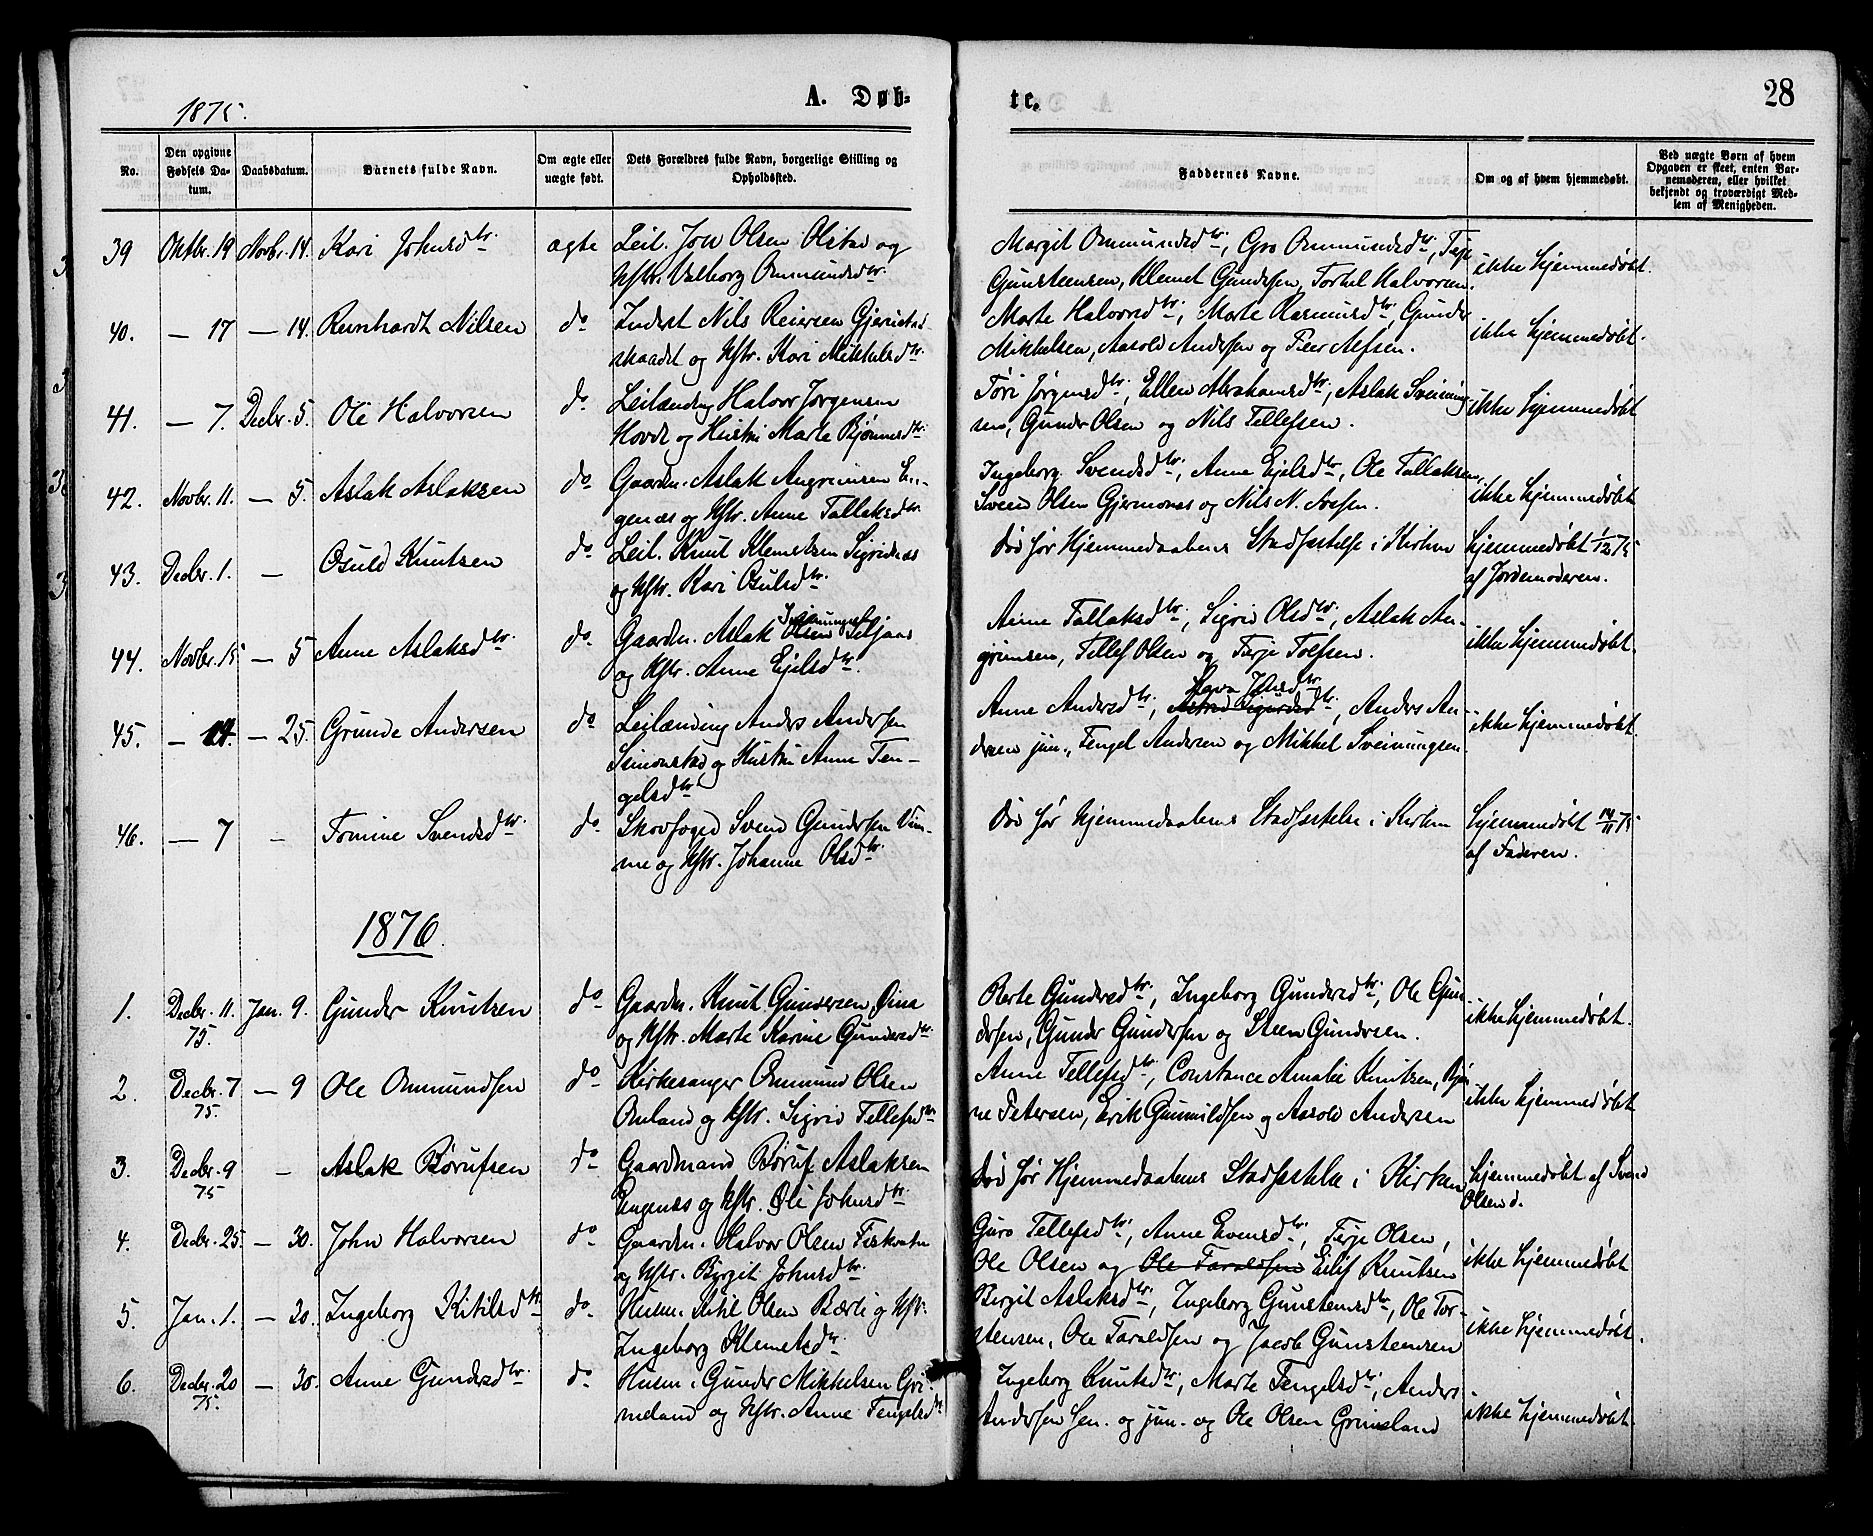 1875.
A. Døb-
te.
28
No.
Den opgivne Fødsels Datum.
Daabsdatum.
Barnets fulde Navn.
Om ægte eller uægte født.
Dets Forældres fulde Navn, borgerlige Stilling og Opholdssted.
Faddernes Navne.
Om og af hvem hjemmedøbt.
Ved uægte Børn af hvem Opgaven er skeet, enten Barnemoderen, eller hvilket bekjendt og troværdigt Medlem af Menigheden.
39 Oktbr. 19 Novbr. 14. Kari Johnsdtr. ægte Leil. Jon Olsen Olstad og
Hstr. Valborg Ommundsdtr.
Margit Ommundsdtr., Gro Ommundsdtr., Terje
Gunsteensen, Klemet Gundersen, Torkel Halvorsen.
ikke hjemmedøbt.
40. — 17 — 14. Reinhardt Nilsen do Inderst Nils Reiersen
og Hstr. Kari Mikkelsdtr.
Marte Halvorsdtr., Marte Rasmusdtr., Gunder
Mikkelsen, Aasold Andersen og Peer
ikke hjemmedøbt.
41. — 7. Decbr. 5. Ole Halvorsen do Leilænding Halvor Jørgensen
Hovde og Hustru Marte Bjørnnsdtr.
Tori Jørgensdtr., Ellen Abrahamsdtr., Aslak Sveining-
sen, Gunder Olsen og Nils Tellefsen.
ikke hjemmedøbt
42. Novbr. 11. — 5. Aslak Aslaksen do Gaardm. Aslak Angrimsen En-
genæs og Hstr. Anne Tallaksdtr.
Ingeborg Svendsdtr., Anne Ejelsdtr., Ole Tallaksen,
Svend Olsen Gjermonæs og Nils N.
ikke hjemmedøbt
43. Decbr. 1. — Osuld Knutsen do Leil. Knut Klemetsen Sigridnæs
og Hstr. Kari Osulsdtr.
Død før Hjemmedaabens Stadfæstelse i Kirken
hjemmedøbt 1/12 75
af Jordemoderen.
44. Novbr. 15 — 5 Anne Aslaksdtr. do Gaardm. Aslak Olsen Seljaas
og Hstr. Anne Ejelsdtr.
Anne Tallaksdtr., Sigrid Olsdtr., Aslak An-
grimsen, Tellef Olsen og Terje Tolfsen.
ikke hjemmedøbt.
45. — 14. — 25. Grunde Andersen do Leilænding Anders Andersen
Simonstad og Hustru Anne Ten-
gelsdtr
Anne Andersdtr., Anders An-
dersen jun., Tengel Andersen og Mikkel Sveinungsen
ikke hjemmedøbt.
46. — 7 — Tomine Svendsdtr. do Skovfoged Svend Gundersen Vim-
me og Hstr. Johanne Olsdtr.
Død før Hjemmedaabens Stadfæstelse i Kirken
hjemmedøbt 14/11 75
af Faderen.
1876.
1. Decbr. 11. Jan. 9. Gunder Knutsen do Gaardm. Knut Gundersen
75. og Hstr. Marte Karine Gundersdtr.
Berte Gundersdtr., Ingeborg Gundersdtr., Ole Gun-
dersen, Gunder Gundersen og Steen Gundersen.
ikke hjemmedøbt.
2. Decbr. 7 — 9 Ole Ommundsen do Kirkesanger Ommund Olsen
75 Omland og Hstr. Sigrid Tellefsdtr
Anne Tellefsdtr., Constance Amalie Knutsen, Bjør-
ne Petersen, Erik Gunnuldsen og Aasold Andersen
ikke hjemmedøbt
3. Decbr. 9 — Aslak Børufsen do Gaardmand Børuf Aslaksen
75 Engenæs og Hstr. Oli Johnsdtr.
Død før Hjemmedaabens Stadfæstelse i Kirken
hjemmedøbt af Svend
Olsen d.
4. Decbr. 25. — 30. John Halvorsen do Gaardm. Halvor Olsen Fiskvatn
og Hstr. Birgit Johnsdtr.
Guro Tellefsdtr., Anne Evensdtr., Terje Olsen,
Ole Olsen og Ole Taraldsen Eilif Knutsen
ikke hjemmedøbt
5. Jan. 1. — 30. Ingeborg Kitilsdtr do. Husm. Kitil Olsen Bærli og Hstr.
Ingeborg Klemetsdtr.
Birgit Aslaksdtr., Ingeborg Gunstensdtr., Ole Tor-
stensen, Ole Taraldsen og Jacob Gunsteensen
ikke hjemmedøbt.
6. Decbr. 20 — 30. Anne Gundersdtr. do Husm. Gunder Mikkelsen Gri-
75. meland og Hstr. Anne Tengelsdtr
Ingeborg Knutsdtr., Marte Tengelsdtr., Anders
Andersen sen. og jun. og Ole Olsen Grimeland
ikke hjemmedøbt.